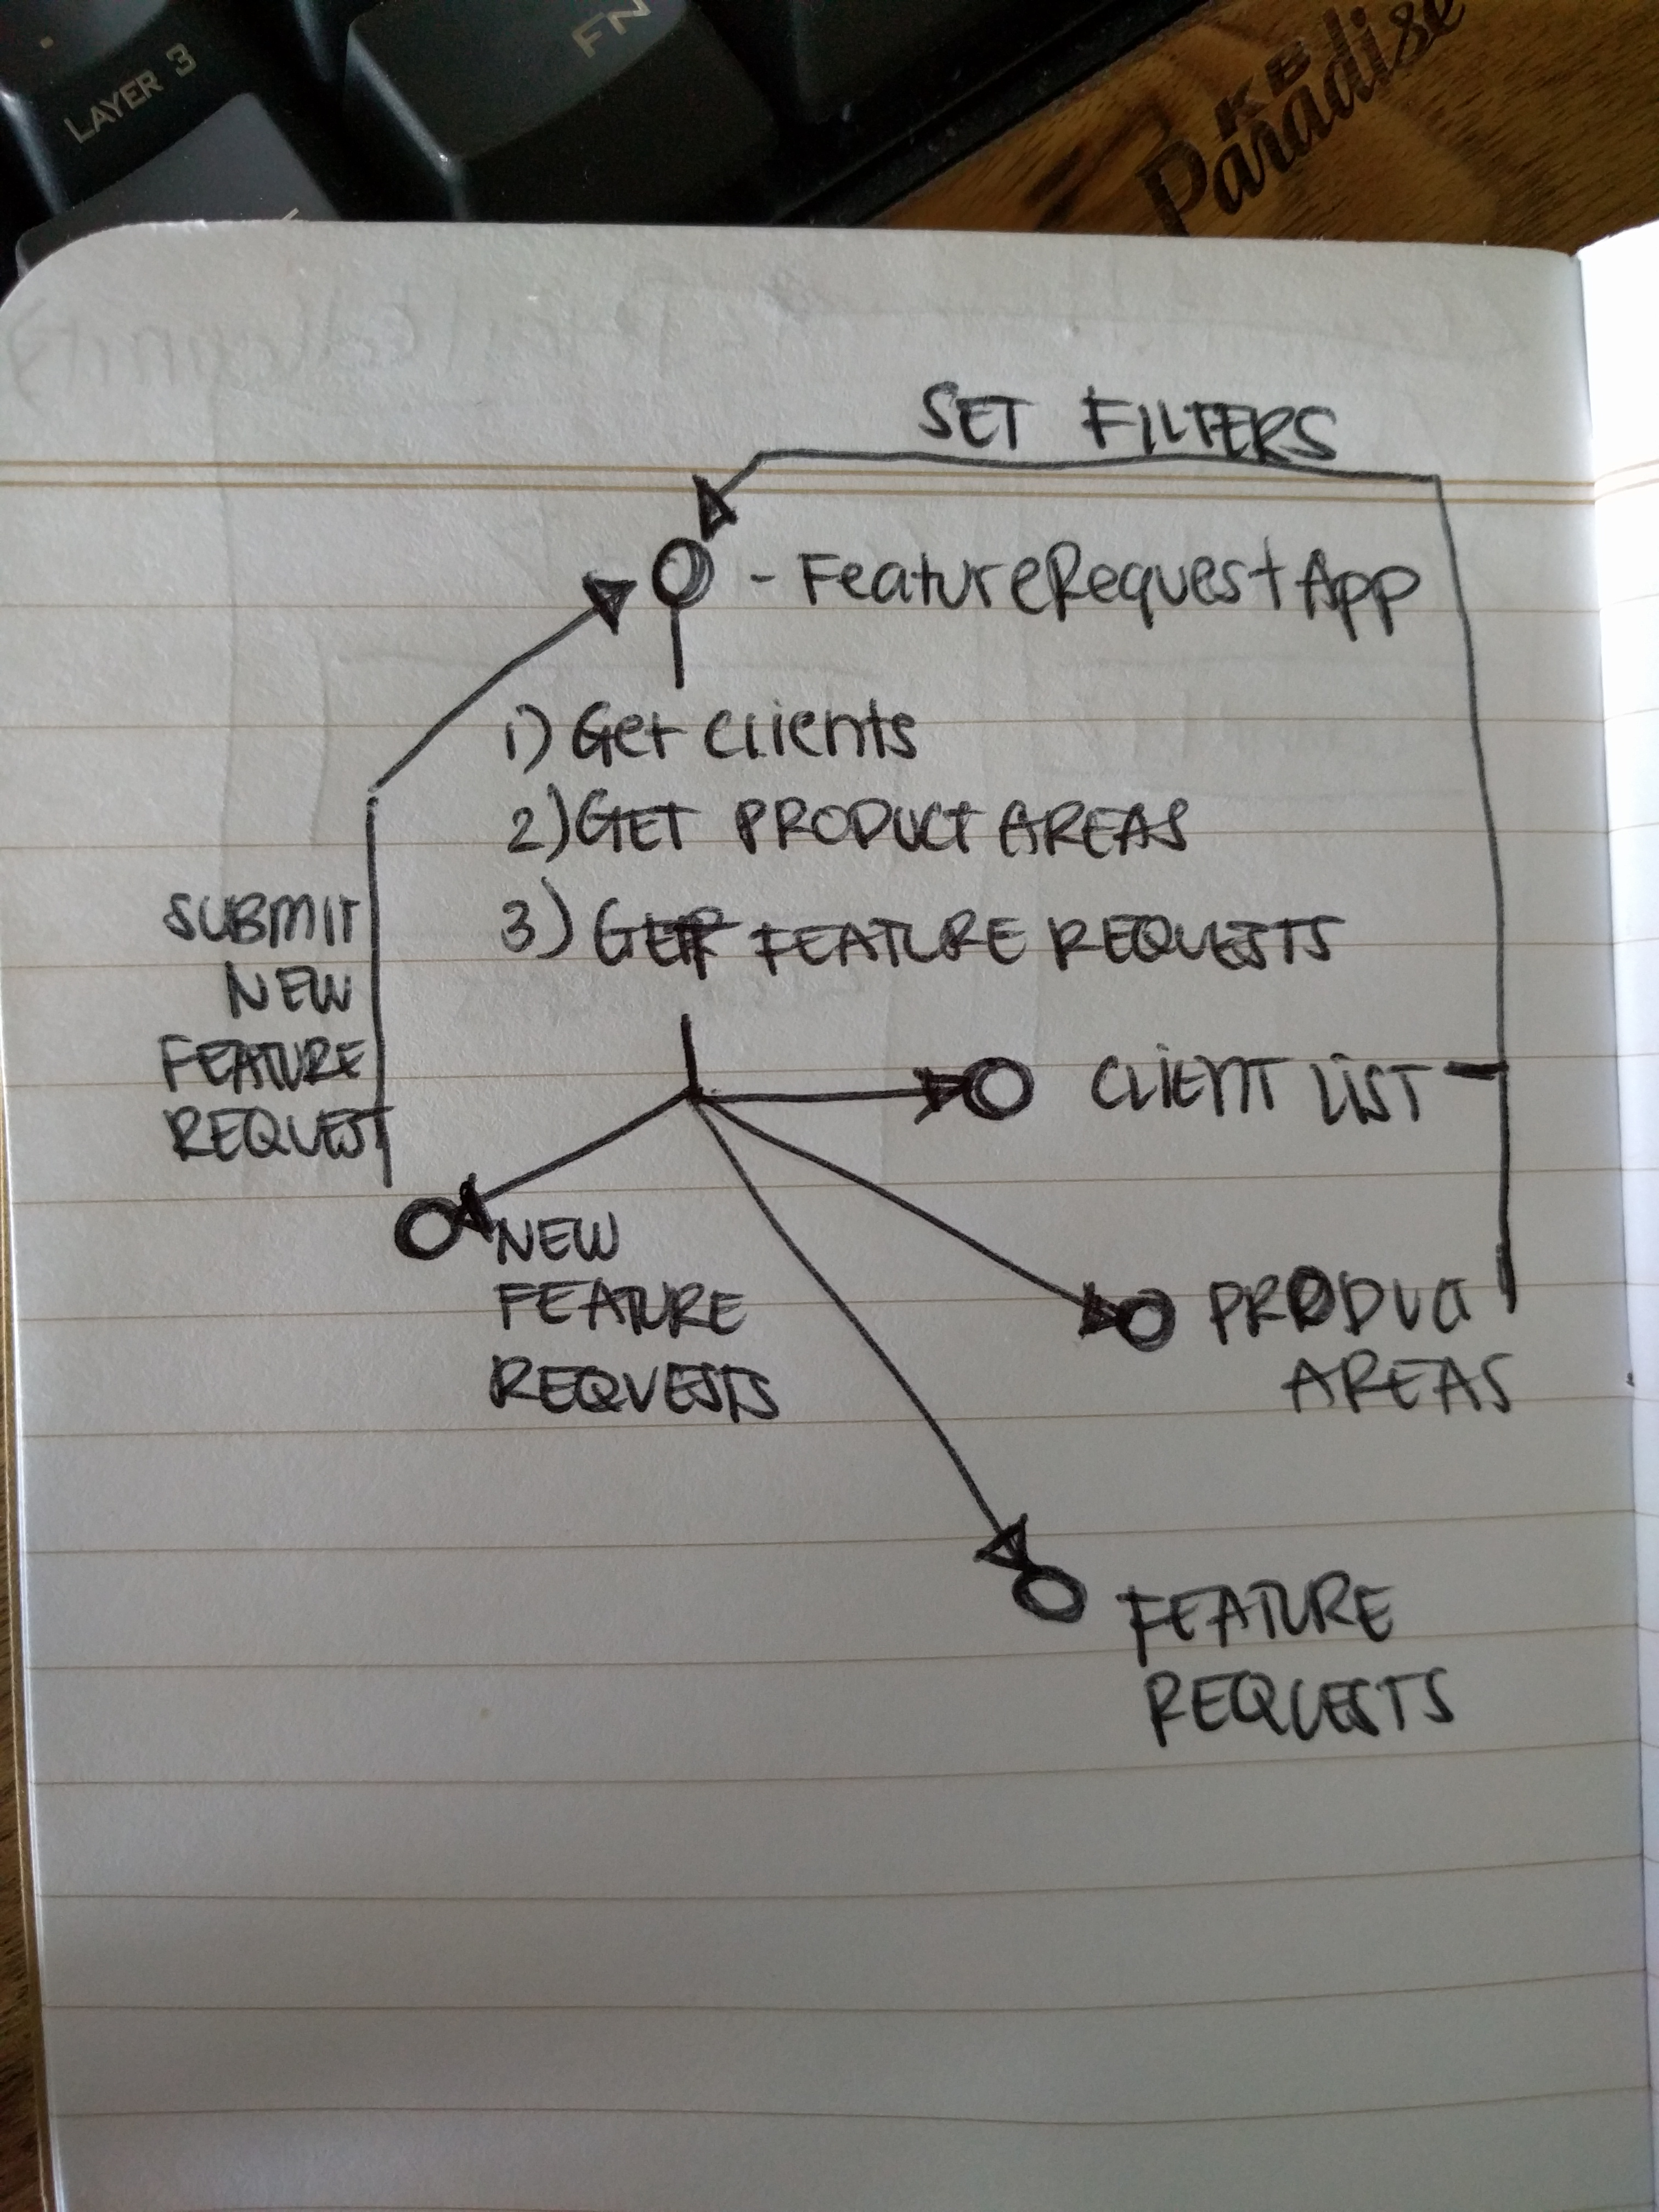 LAYER 3
FN
KB
Paradise
SET FILTERS
- FeatureRequestApp
1) Get clients
2) GET PRODUCT AREAS
3) GET FEATURE REQUESTS
SUBMIT
NEW
FEATURE
REQUEST
CLIENT LIST
NEW
FEATURE
REQUESTS
PRODUCT
AREAS
FEATURE
REQUESTS